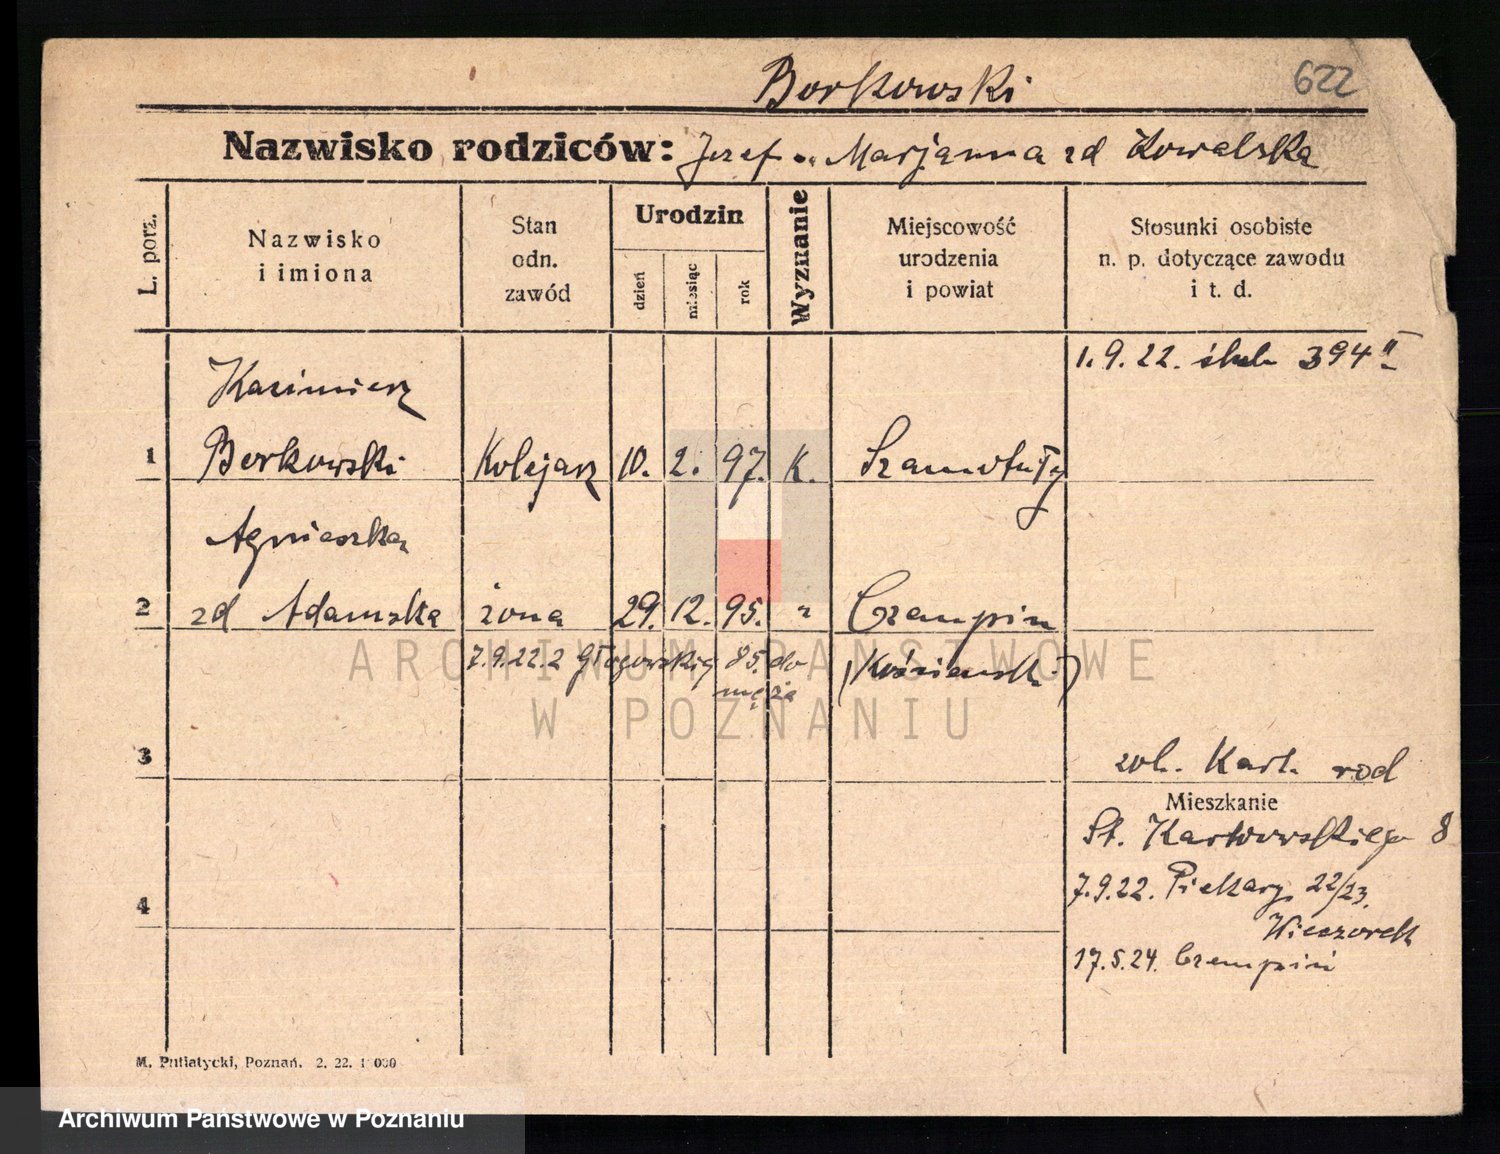 Borkowski
622
Nazwisko rodziców: Jozef .. Marjanna zd Kowalska
L. porz.
Nazwisko i imiona
Stan odn. zawód
Urodzin
dzień
miesiąc
rok
Wyznanie
Miejscowość urodzenia i powiat
Stosunki osobiste n. p. dotyczące zawodu i t. d.
1. 9. 22. ślub 394 II
Kazimierz
1 Borkowski Kolejarz 10. 2. 97. K. Szamotuły
Agnieszka
2 zd Adamska żona 29. 12. 95. " Czempin
7.9.22. z Głogowskiej 85. do męża (Kościański)
ARCHIWUM PAŃSTWOWE
W POZNANIU
3
zob. Kart. rod
Mieszkanie
St. Karwowskiego 8
7.9.22. Piekary 22/23.
4
Wieczorek
17.5.24. Czempiń
M. Putiatycki, Poznań. 2. 22. 1000
Archiwum Państwowe w Poznaniu